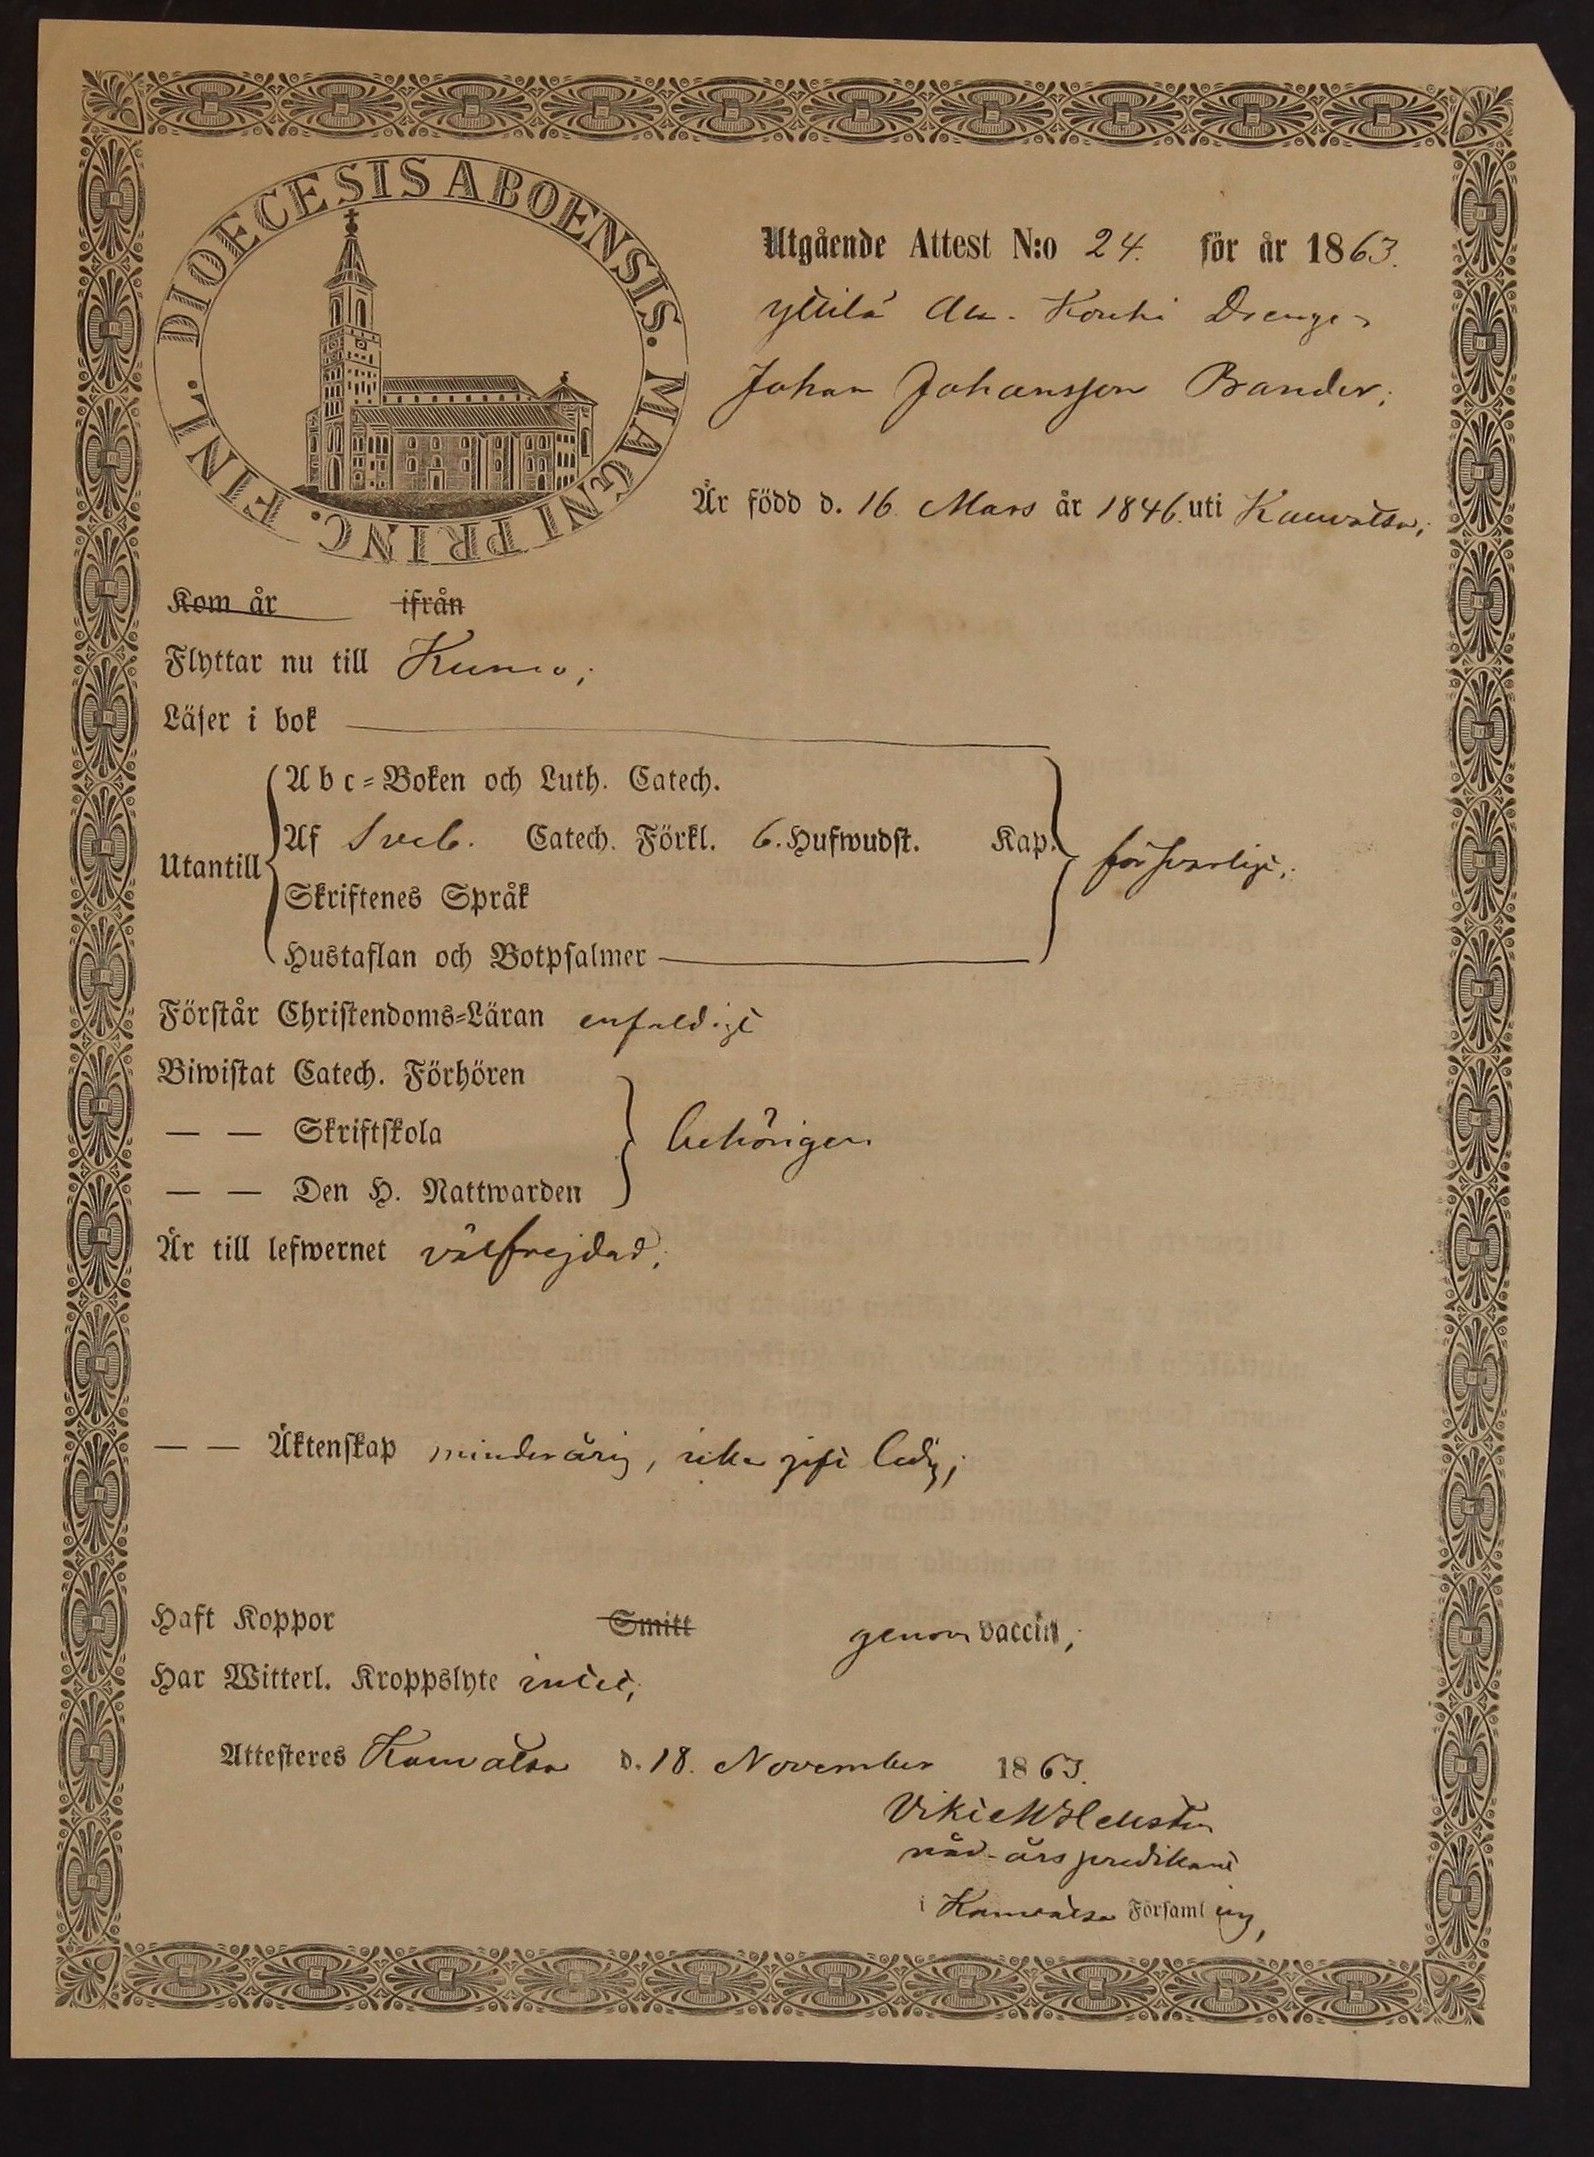 DIOECESIS ABOENSIS. MAGNI PRINC. FINL.
Utgående Attest N:o 24. för år 1863.
Drengen
Johan Johansson Brander.
Är född d. 16 Mars år 1846. uti Kauvatsa;
Kom år ifrån
Flyttar nu till Kumo;
Läser i bok
Utantill
Abc-Boken och Luth. Catech.
Af Sveb. Catech. Förkl. 6. Hufwudst. Kap.
försvarligt.
Skriftenes Språk
Hustaflan och Botpsalmer
Förstår Christendoms-Läran enfaldigt
Biwistat Catech. Förhören
— — Skriftskola
behörigen
— — Den H. Nattwarden
Är till lefwernet välfrejdad.
— — Äktenskap minderårig, icke gift ledig;
Haft Koppor Smitt genom vaccin;
Har Witterl. Kroppslyte intet;
Attesteres Kauvatsa d. 18. November 1863.
nåd-års predikant
i Kauvatsa Församling,